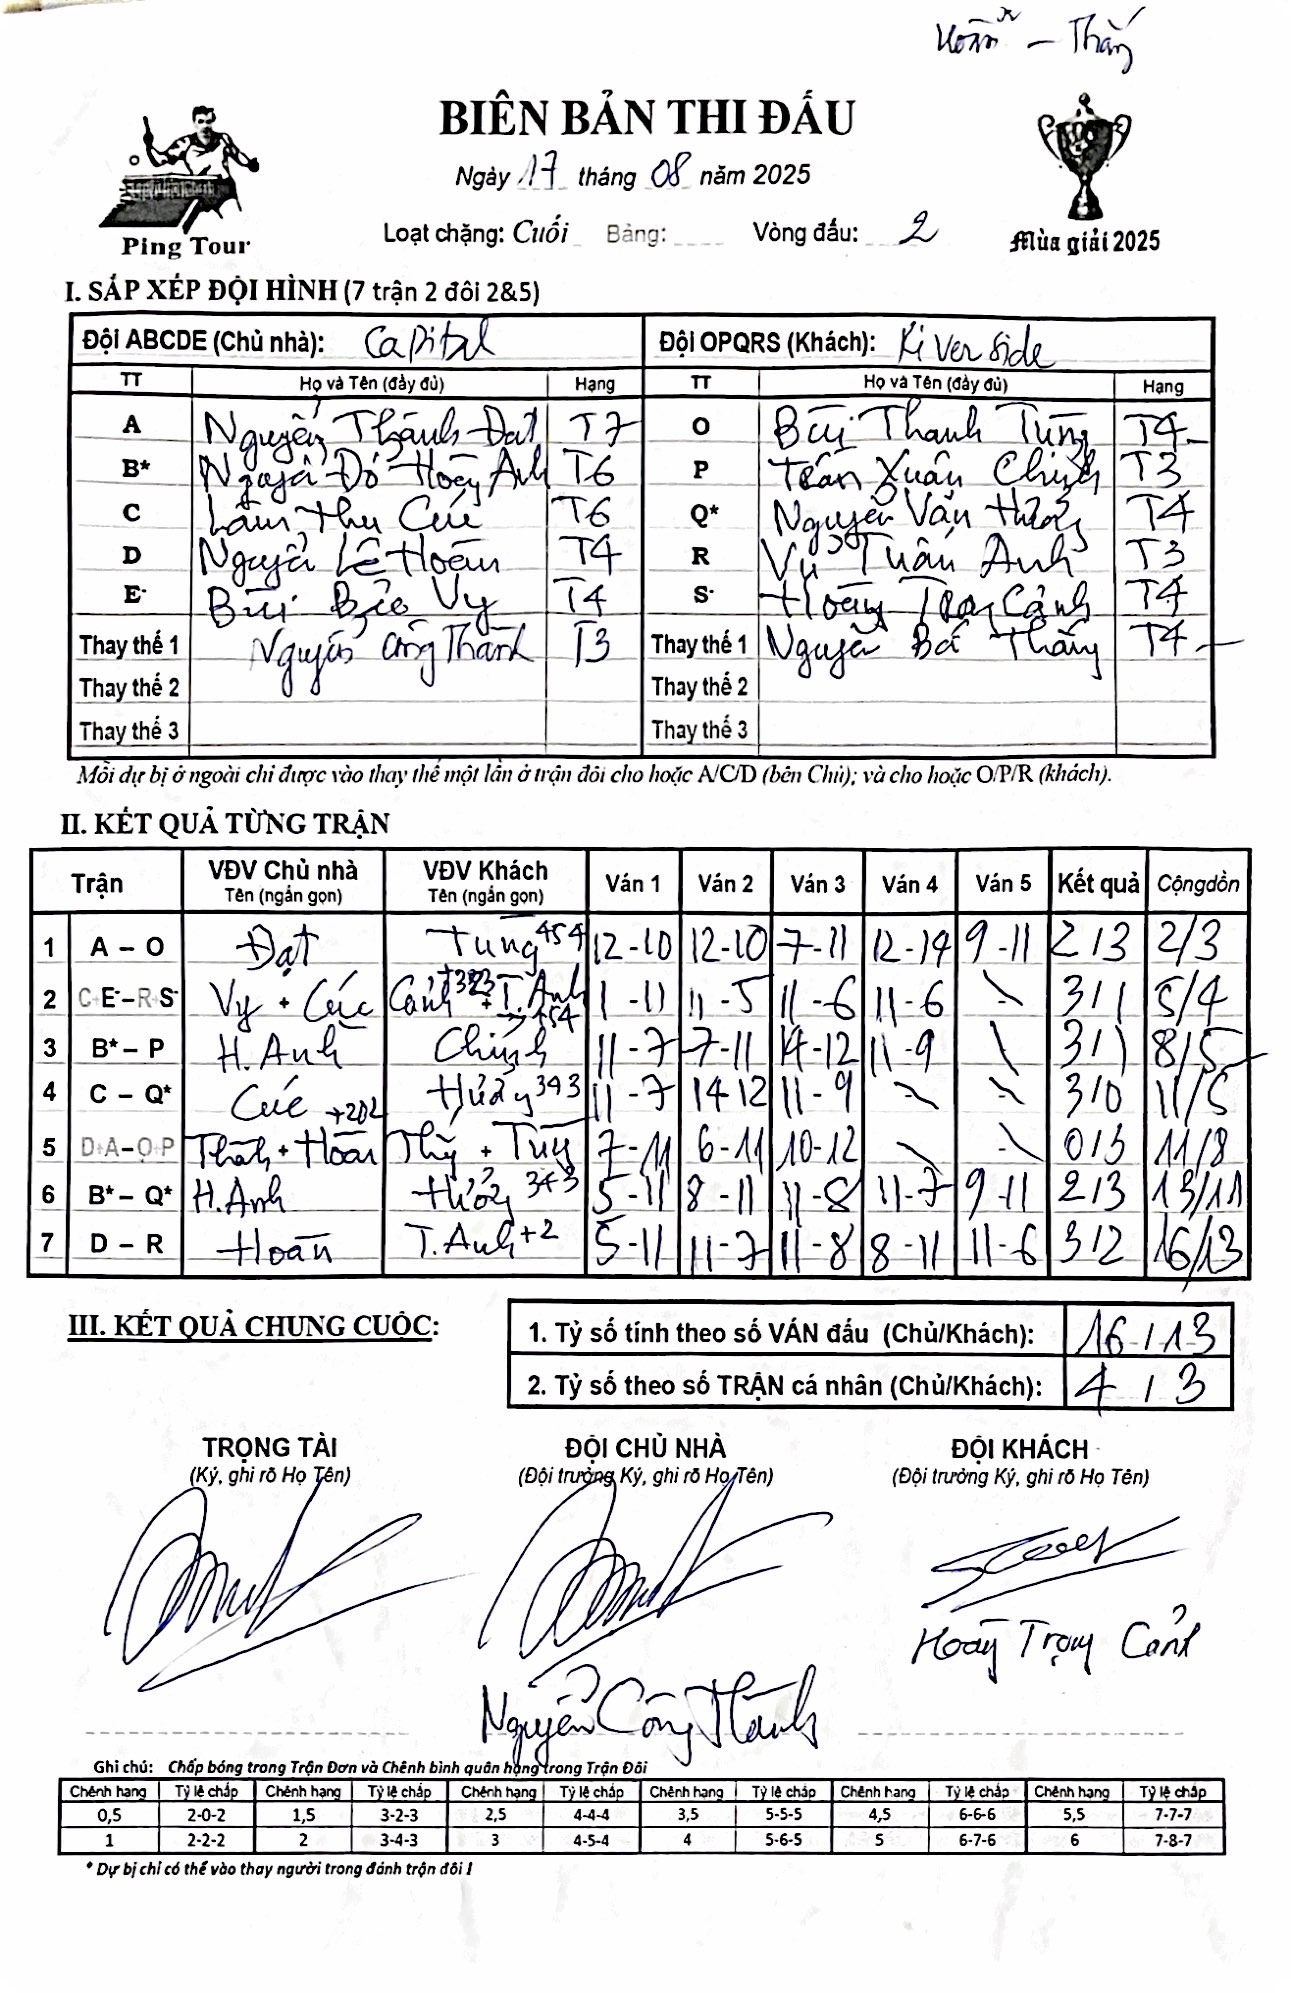 Hoãn - Thắng
BIÊN BẢN THI ĐẤU
Ngày 17 tháng 08 năm 2025
Ping Tour
Loạt chặng: Cuối Bảng: Vòng đấu: 2
Mùa giải 2025
I. SẮP XẾP ĐỘI HÌNH (7 trận 2 đôi 2&5)
Đội ABCDE (Chủ nhà): Capital Đội OPQRS (Khách): Riverside
TT Họ và Tên (đầy đủ) Hạng TT Họ và Tên (đầy đủ) Hạng
A Nguyễn Thành Đạt T7 O Bùi Thanh Tùng T4
B* Nguyễn Đỗ Hoàng Anh T6 P Trần Xuân Chính T3
C Lâm Thu Cúc T6 Q* Nguyễn Văn Hưởng T4
D Nguyễn Lê Hoãn T4 R Vũ Tuấn Anh T3
E- Bùi Bảo Vy T4 S- Hoàng Trọng Cảnh T4
Thay thế 1 Nguyễn Công Thành T3 Thay thế 1 Nguyễn Bá Thắng T4
Thay thế 2 Thay thế 2
Thay thế 3 Thay thế 3
Mỗi dự bị ở ngoài chỉ được vào thay thế một lần ở trận đôi cho hoặc A/C/D (bên Chủ); và cho hoặc O/P/R (khách).
II. KẾT QUẢ TỪNG TRẬN
Trận VĐV Chủ nhà Tên (ngắn gọn) VĐV Khách Tên (ngắn gọn) Ván 1 Ván 2 Ván 3 Ván 4 Ván 5 Kết quả Cộngdồn
1 A – O Đạt Tùng 454 12-10 12-10 7-11 12-14 9-11 2/3 2/3
2 C+E-–R+S- Vy + Cúc Cảnh +323 + T. Anh 1-11 11-5 11-6 11-6 - 3/1 5/4
3 B* – P H. Anh Chính +454 11-7 7-11 14-12 11-9 \ 3/1 8/5
4 C – Q* Cúc Hưởng 343 11-7 14-12 11-9 - - 3/0 11/5
5 D+A–O+P Thành + Hoãn +202 + Tùng 7-11 6-11 10-12 - 0/3 11/8
6 B* – Q* H. Anh Hưởng 343 5-11 8-11 11-8 11-7 9-11 2/3 13/11
7 D – R Hoãn T. Anh +2 5-11 11-7 11-8 8-11 11-6 3/2 16/13
III. KẾT QUẢ CHUNG CUỘC:
1. Tỷ số tính theo số VÁN đấu (Chủ/Khách): 16/13
2. Tỷ số theo số TRẬN cá nhân (Chủ/Khách): 4/3
TRỌNG TÀI ĐỘI CHỦ NHÀ ĐỘI KHÁCH
(Ký, ghi rõ Họ Tên) (Đội trưởng Ký, ghi rõ Họ Tên) (Đội trưởng Ký, ghi rõ Họ Tên)
Hoàng Trọng Cảnh
Nguyễn Công Thành
Ghi chú: Chấp bóng trong Trận Đơn và Chênh bình quân hạng trong Trận Đôi
Chênh hạng Tỷ lệ chấp Chênh hạng Tỷ lệ chấp Chênh hạng Tỷ lệ chấp Chênh hạng Tỷ lệ chấp Chênh hạng Tỷ lệ chấp Chênh hạng Tỷ lệ chấp
0,5 2-0-2 1,5 3-2-3 2,5 4-4-4 3,5 5-5-5 4,5 6-6-6 5,5 7-7-7
1 2-2-2 2 3-4-3 3 4-5-4 4 5-6-5 5 6-7-6 6 7-8-7
* Dự bị chỉ có thể vào thay người trong đánh trận đôi !